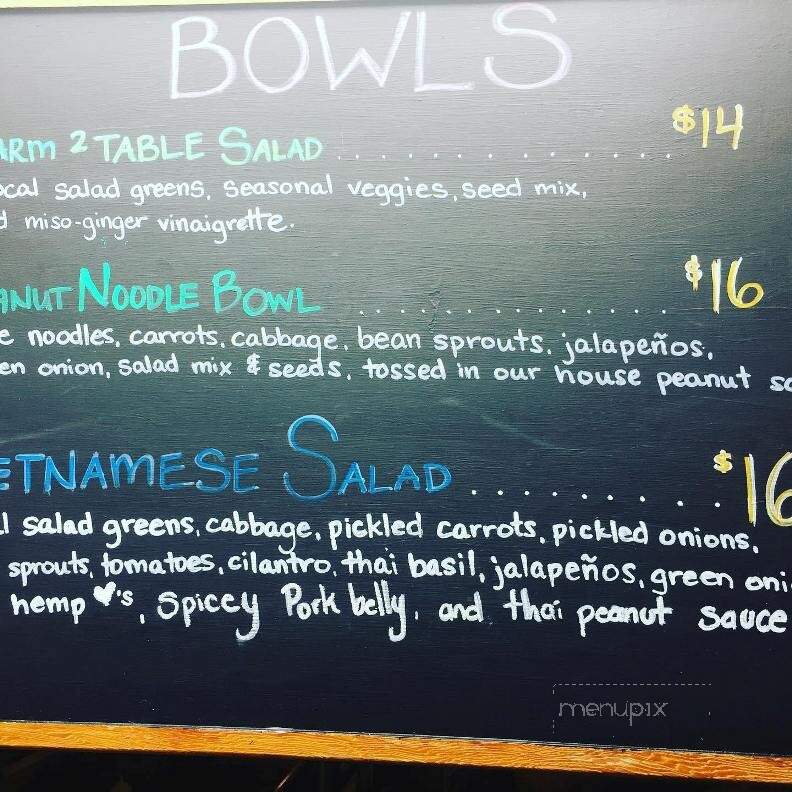 BOWLS
ARM 2 TABLE SALAD . . . . . . . . . . . . $14
ocal salad greens, seasonal veggies, seed mix,
d miso-ginger vinaigrette.
ANUT NOODLE BOWL . . . . . . . . . . . . . . $16
e noodles, carrots, cabbage, bean sprouts, jalapeños,
en onion, salad mix & seeds, tossed in our house peanut sa
ETNAMESE SALAD . . . . . . . . . $16
l salad greens, cabbage, pickled carrots, pickled onions,
sprouts, tomatoes, cilantro, thai basil, jalapeños, green oni
hemp ♥'s, Spicey Pork belly, and thai peanut sauce
menupix